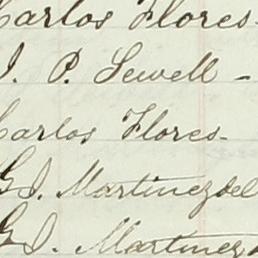 Carlos Flores-
J. P. Sewell -
Carlos Flores-
G J. Martinez del
G J. Martinez